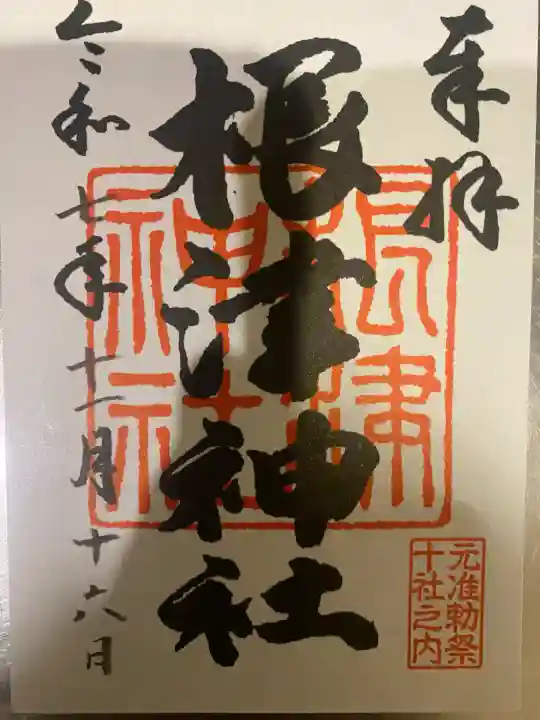 奉拝
根津神社
根津
神社
元准勅祭
十社之内
令和七年十一月十六日